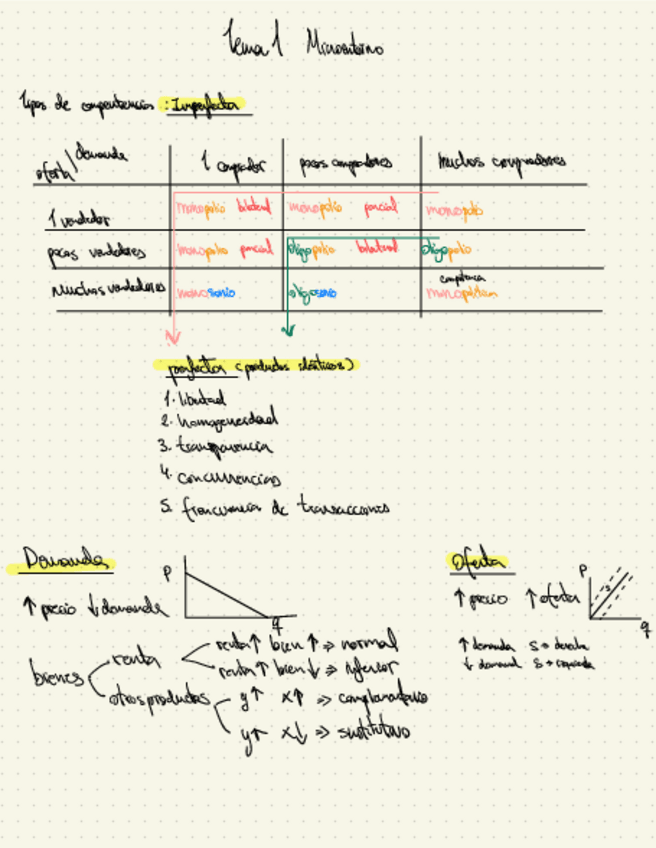 Tema 1 Microentorno
Tipos de competencias: Imperfecta
oferta/demanda 1 comprador pocos compradores muchos compradores
1 vendedor monopolio bilateral monopolio parcial monopolio
pocos vendedores monopolio parcial oligopolio bilateral oligopolio
Muchos vendedores monosonio oligosonio competencia monopolitica
perfecta (productos idénticos)
1. libertad
2. homogeneidad
3. transparencia
4. concurrencias
5. frecuencia de transacciones
Demanda
P
q
↑ precio ↓ demanda
bienes
renta
renta ↑ bien ↑ => normal
renta ↑ bien ↓ => inferior
otros productos
y↑ x↑ => complementario
y↑ x↓ => sustitutivo
Oferta
P
s
q
↑ precio ↑ oferta
↑ demanda S → derecha
↓ demand S → izquierda